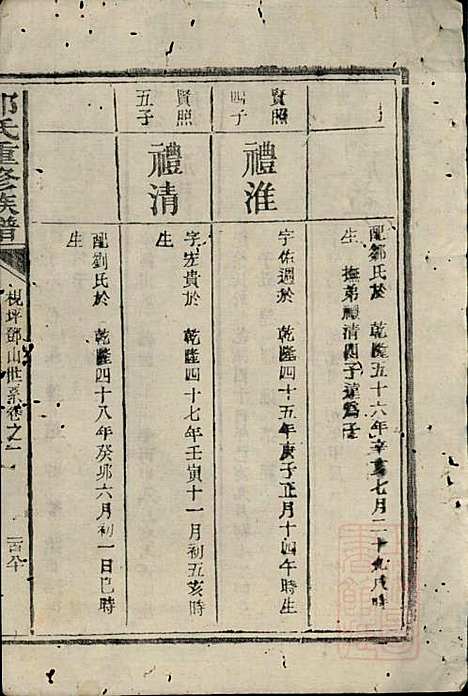 配鄒氏於　乾隆五十六年辛亥七月二十九戌時
生　撫弟禮清四子達爲子
賢照
四子
禮淮
字佑週於　乾隆四十五年庚子正月十四午時生
賢照
五子
禮清
字宏貴於　乾隆四十七年壬寅十一月初五亥時
生
配劉氏於　乾隆四十八年癸卯六月初一日巳時
生
氏重修族譜
視坪鄧山世系卷之一